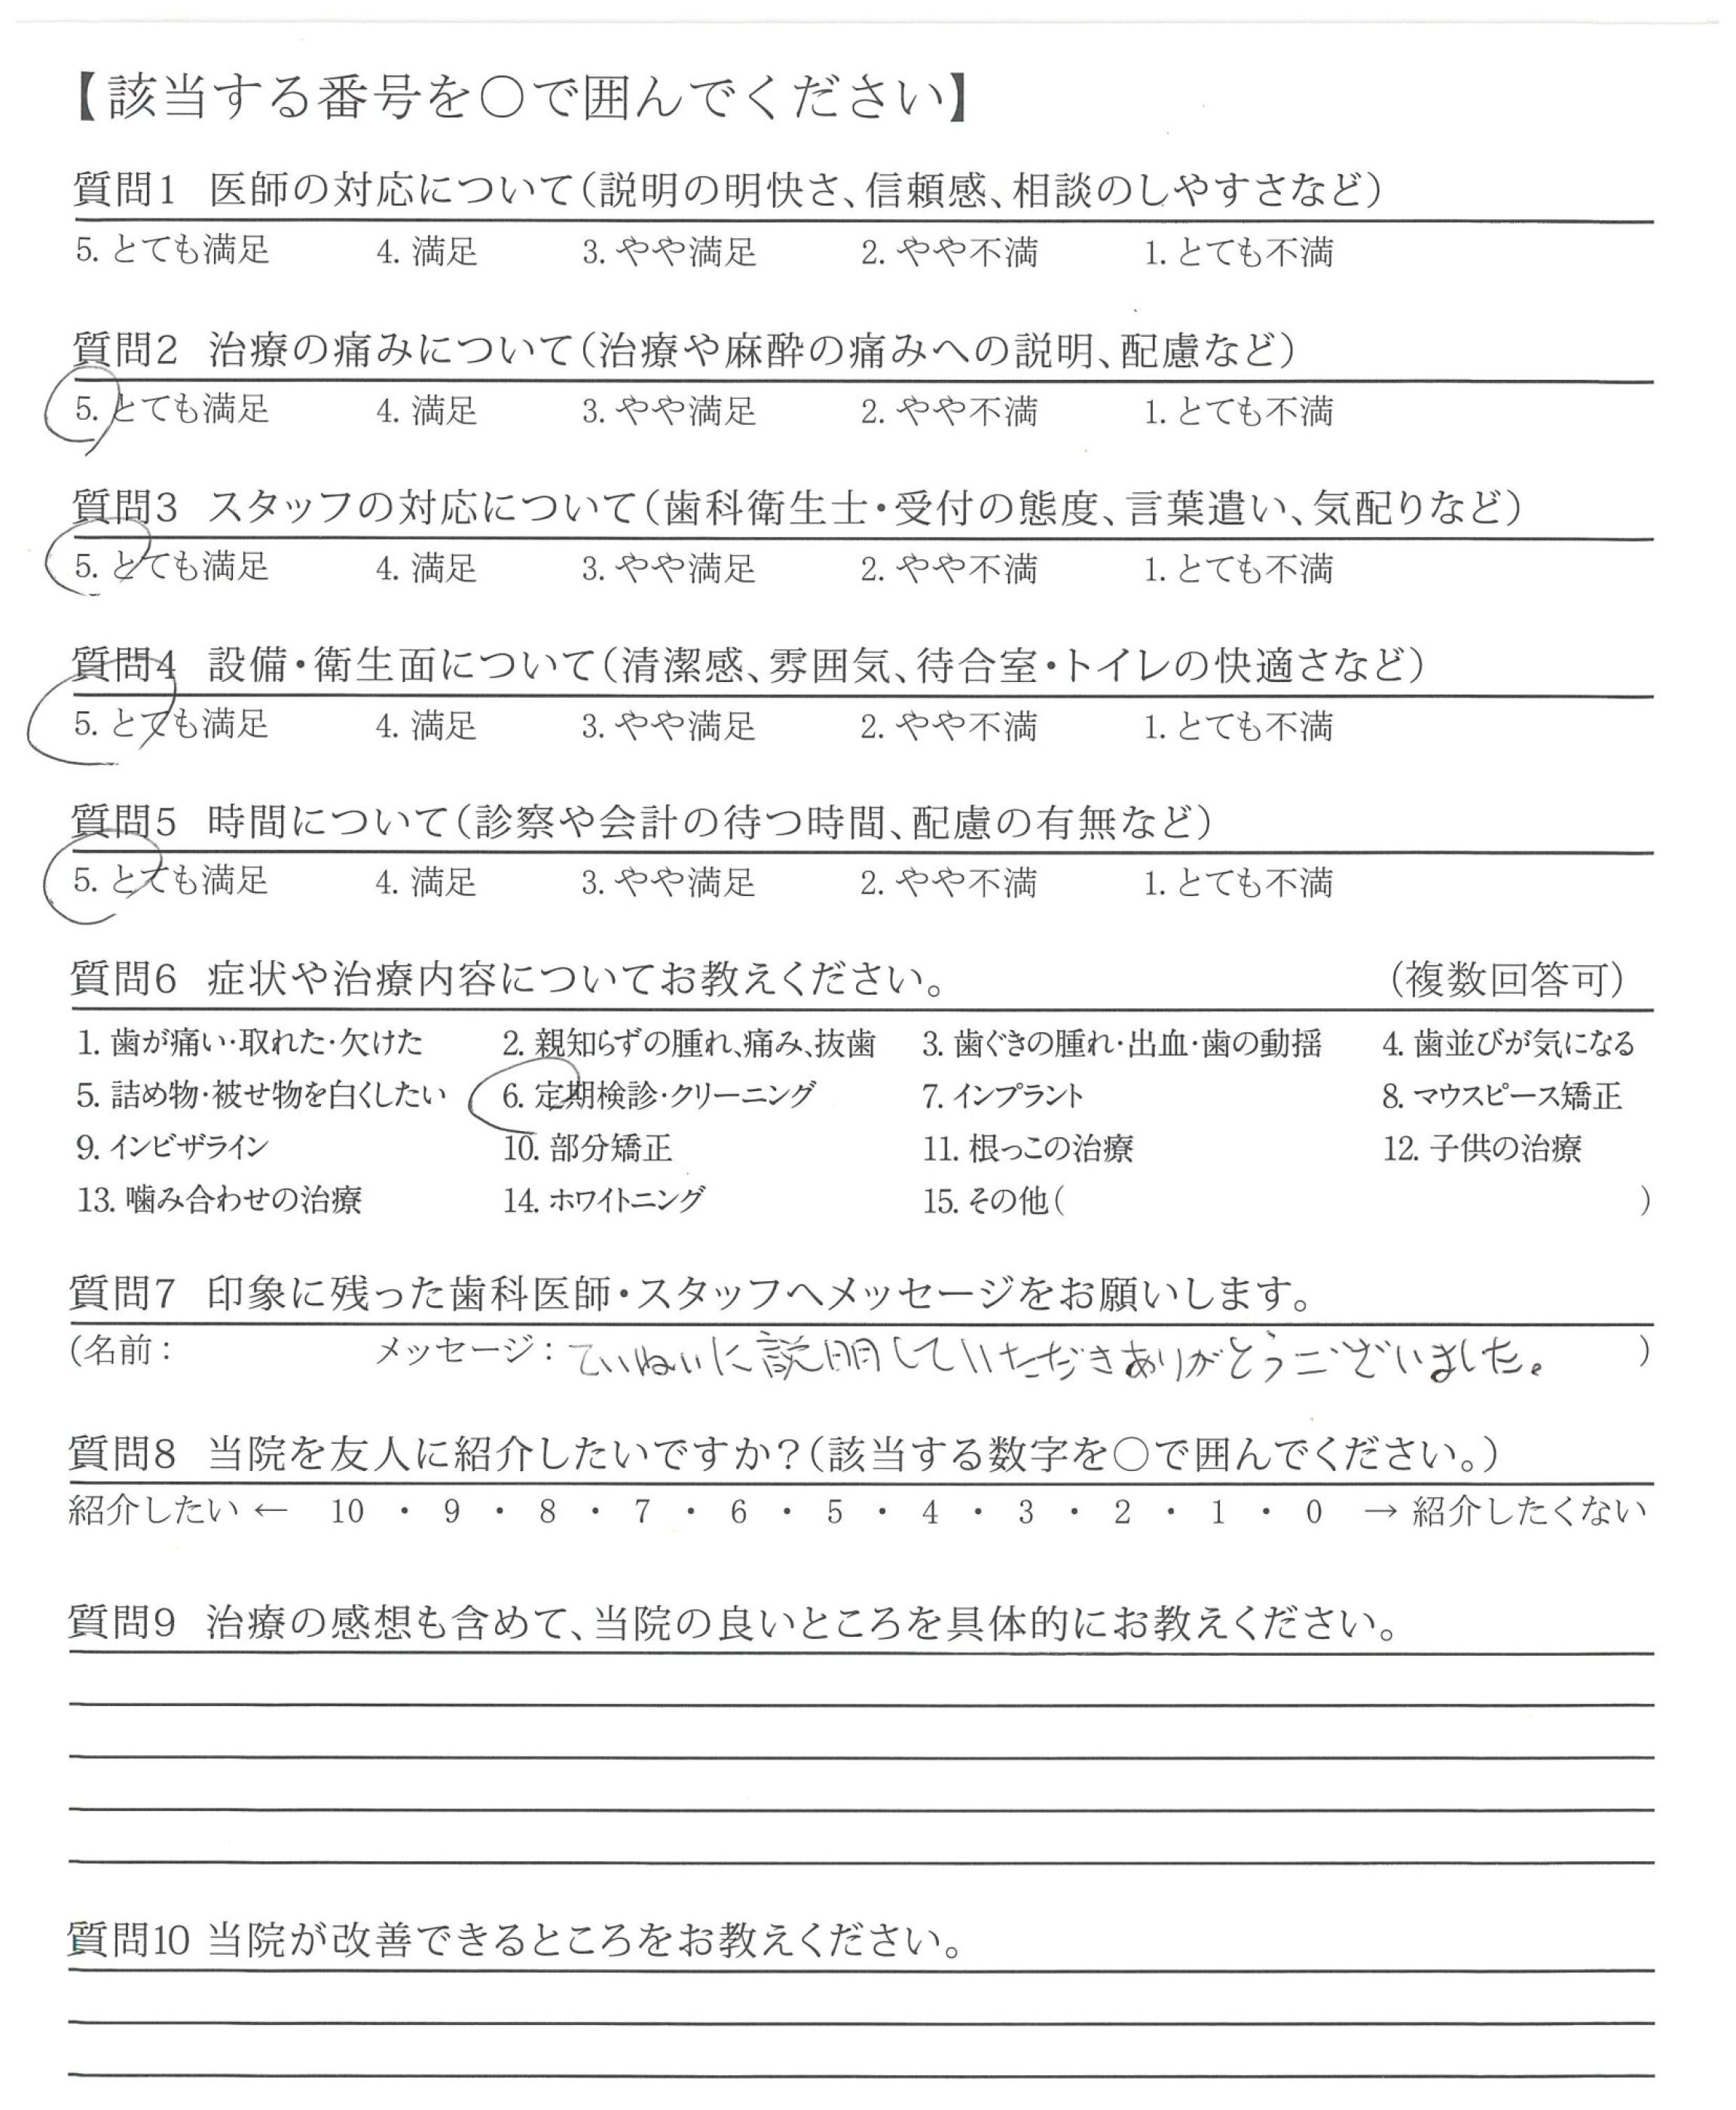 【該当する番号を○で囲んでください】
質問1 医師の対応について(説明の明快さ、信頼感、相談のしやすさなど)
5. とても満足 4. 満足 3. やや満足 2. やや不満 1. とても不満
質問2 治療の痛みについて(治療や麻酔の痛みへの説明、配慮など)
5. とても満足 4. 満足 3. やや満足 2. やや不満 1. とても不満
質問3 スタッフの対応について(歯科衛生士・受付の態度、言葉遣い、気配りなど)
5. とても満足 4. 満足 3. やや満足 2. やや不満 1. とても不満
質問4 設備・衛生面について(清潔感、雰囲気、待合室・トイレの快適さなど)
5. とても満足 4. 満足 3. やや満足 2. やや不満 1. とても不満
質問5 時間について(診察や会計の待つ時間、配慮の有無など)
5. とても満足 4. 満足 3. やや満足 2. やや不満 1. とても不満
質問6 症状や治療内容についてお教えください。 (複数回答可)
1. 歯が痛い・取れた・欠けた 2. 親知らずの腫れ、痛み、抜歯 3. 歯ぐきの腫れ・出血・歯の動揺 4. 歯並びが気になる
5. 詰め物・被せ物を白くしたい 6. 定期検診・クリーニング 7. インプラント 8. マウスピース矯正
9. インビザライン 10. 部分矯正 11. 根っこの治療 12. 子供の治療
13. 噛み合わせの治療 14. ホワイトニング 15. その他( )
質問7 印象に残った歯科医師・スタッフへメッセージをお願いします。
(名前: メッセージ: ていねいに説明していただきありがとうございました。 )
質問8 当院を友人に紹介したいですか?(該当する数字を○で囲んでください。)
紹介したい ← 10 ・ 9 ・ 8 ・ 7 ・ 6 ・ 5 ・ 4 ・ 3 ・ 2 ・ 1 ・ 0 → 紹介したくない
質問9 治療の感想も含めて、当院の良いところを具体的にお教えください。
質問10 当院が改善できるところをお教えください。